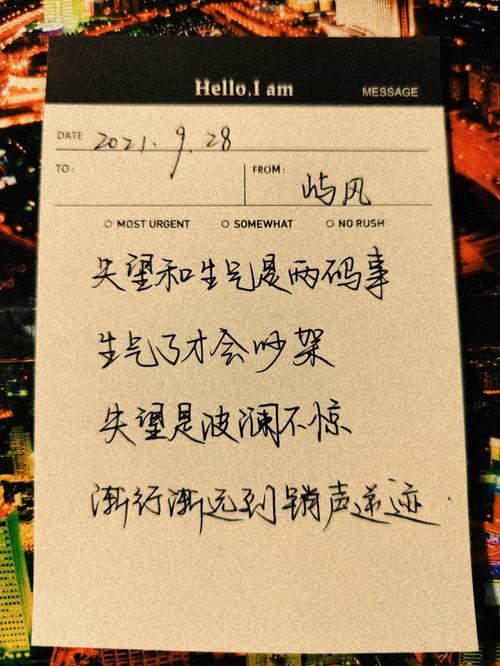 Hello, I am
MESSAGE
DATE 2021. 9. 28
TO: FROM: 屿风
MOST URGENT SOMEWHAT NO RUSH
失望和生气是两码事
生气了才会吵架
失望是波澜不惊
渐行渐远到销声逆迹